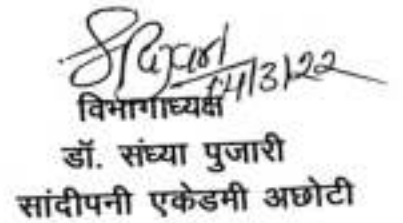 14/3/22
विभागाध्यक्ष
डॉ. संध्या पुजारी
सांदीपनी एकेडमी अछोटी